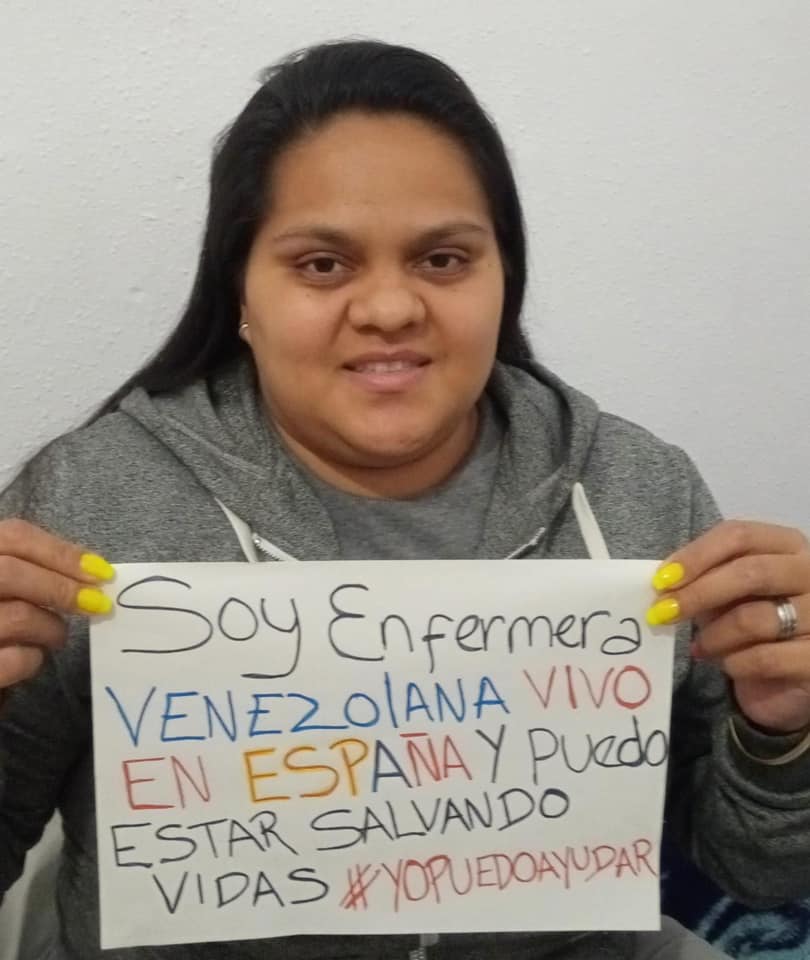 Soy Enfermera
VENEZolANA VIVO
EN ESPAÑA Y PUEdo
ESTAR SALVANDO
VIDAS #YOPUEDOAYUDAR